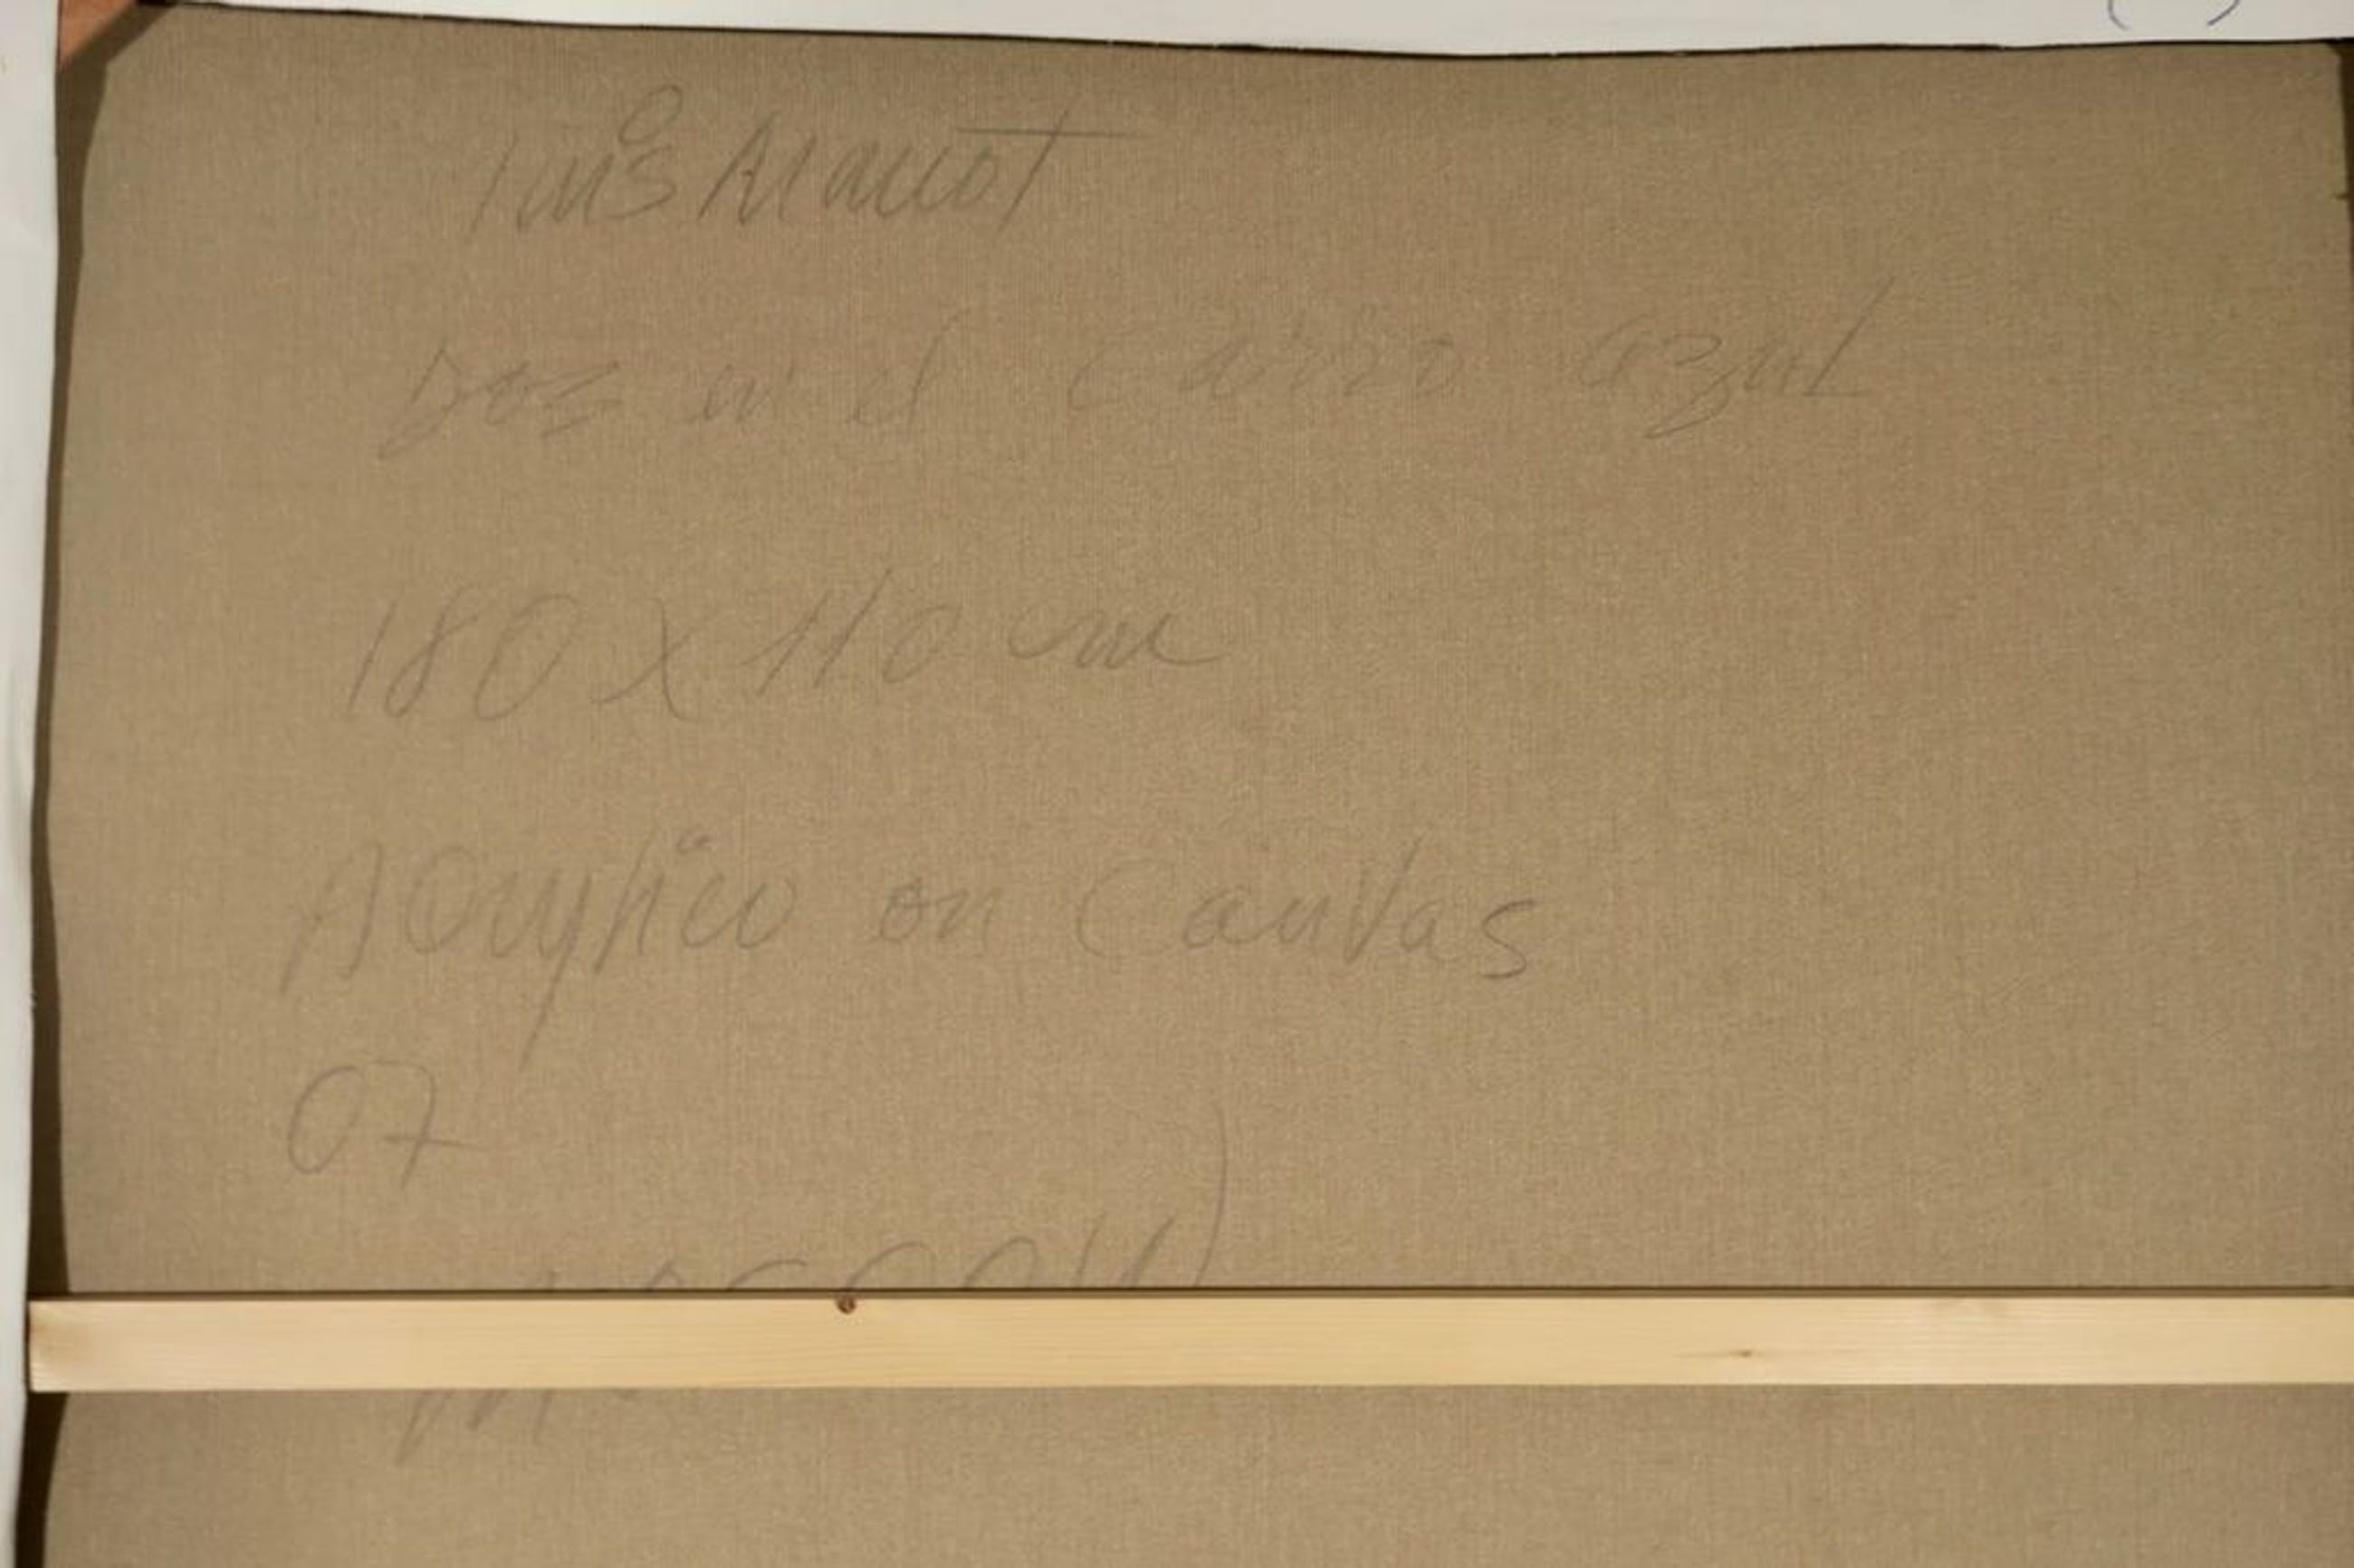 Luis Amavot
Dos en el carro azul
180 x 110 cm
Acrylico on Canvas
07